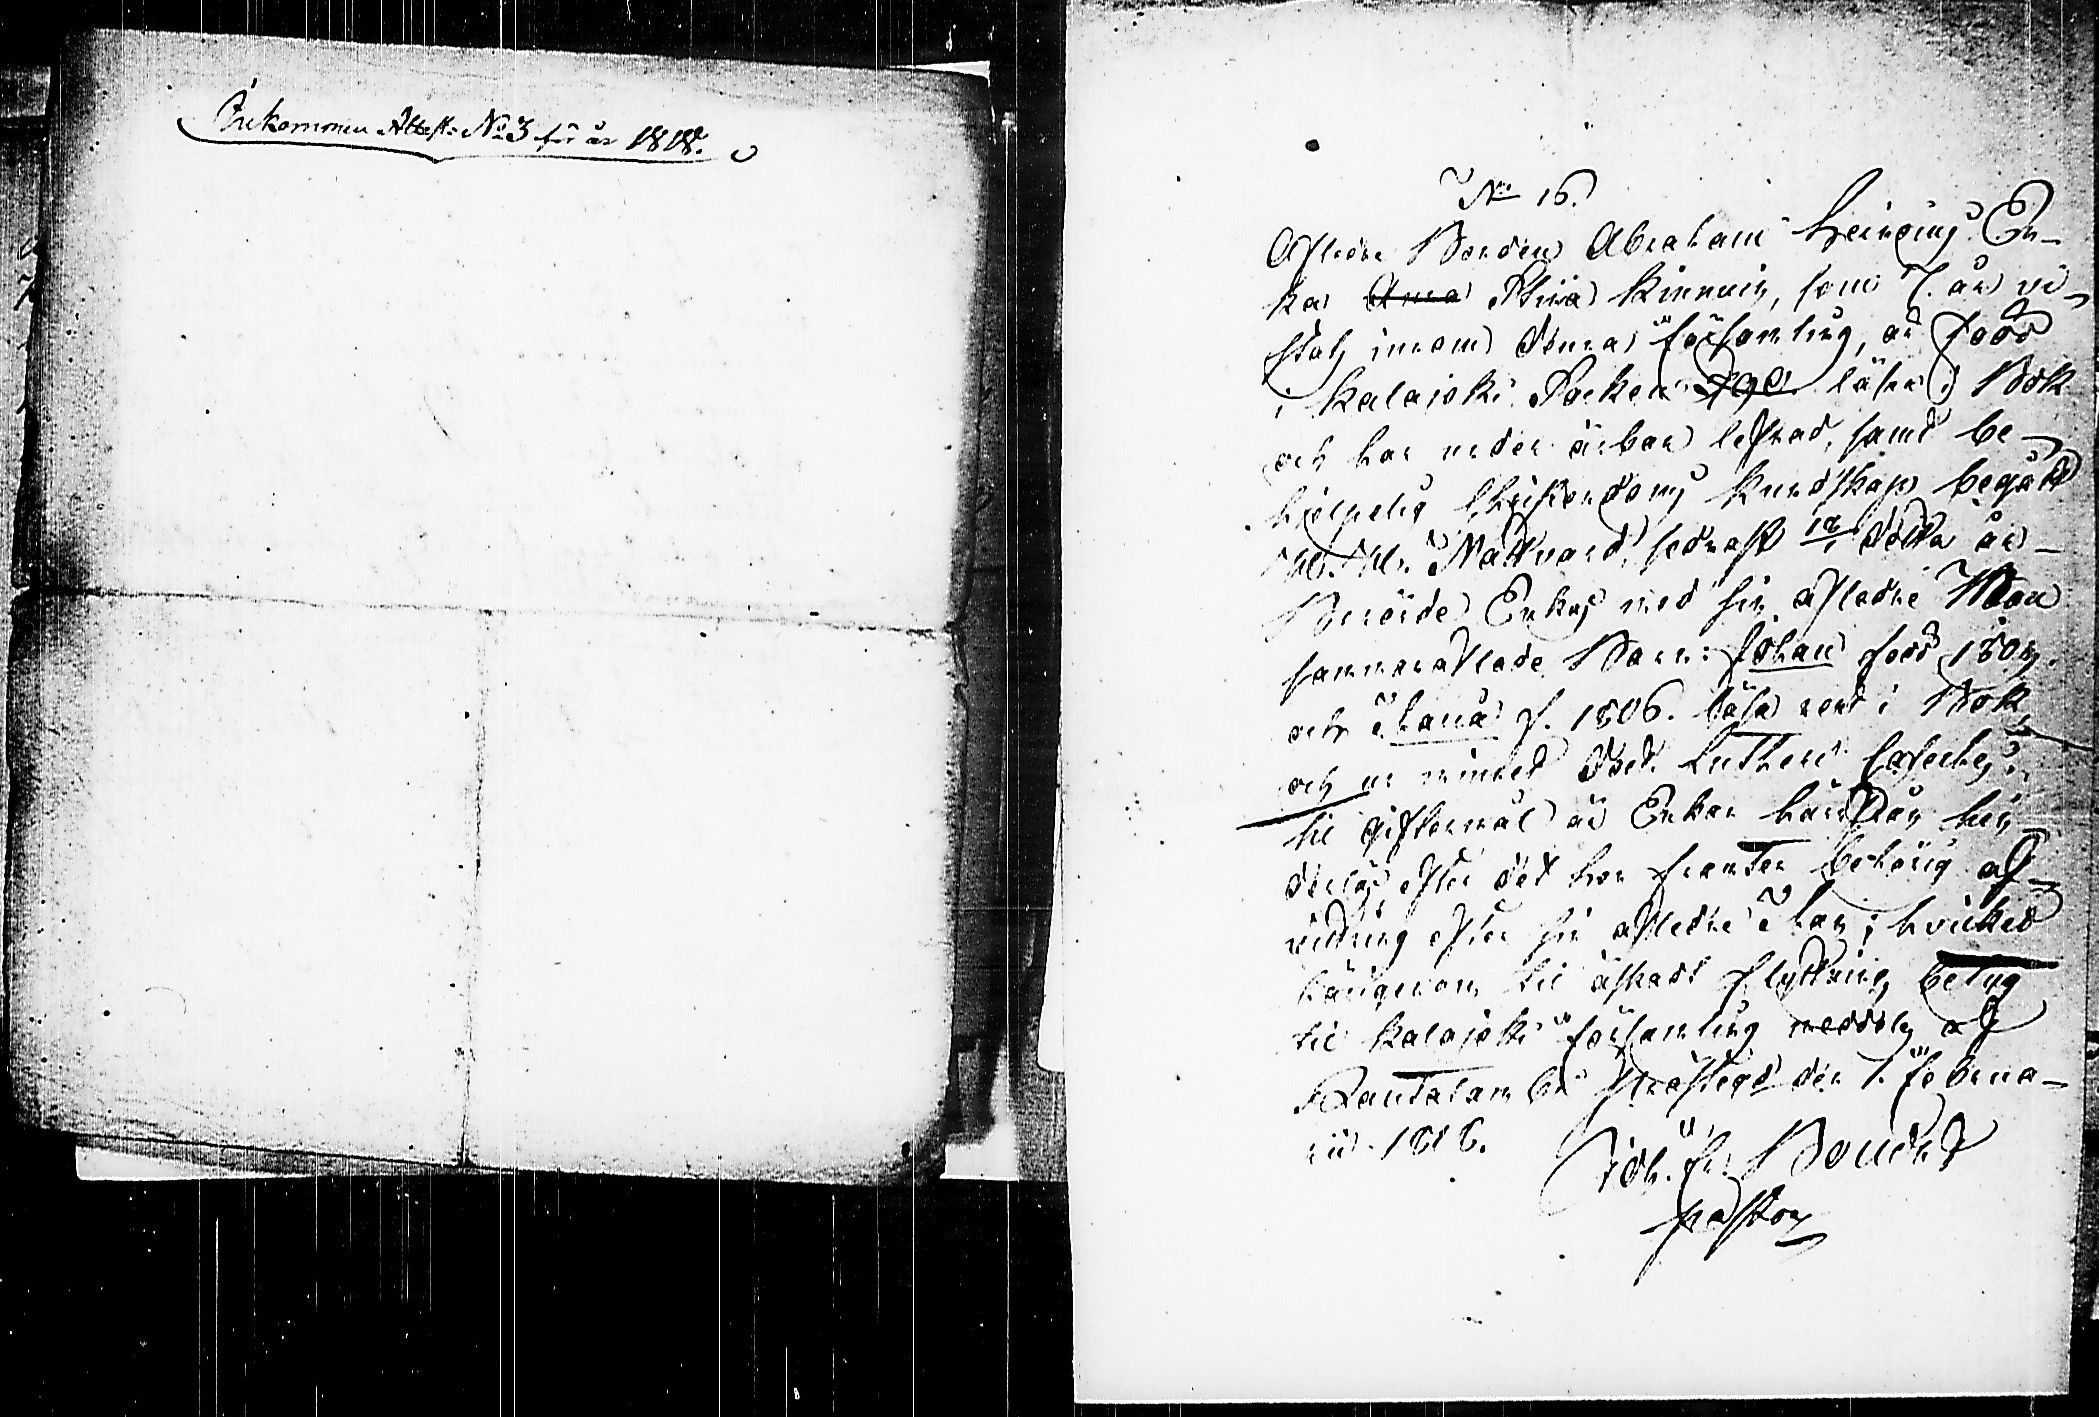 Inkommen Attest No 3 för år 1818.
No 16.
Afledne Bonden Abraham Heinoins En-
ka Anna Stina Kinnuin, som 7. år vi-
statz innom denna församling, är född
i Kalajoki Socken 790 läser i Bok
och har under ärbar lefnad, samt be-
hjelpelig Christendoms Kundskap begådt
H. H. Nattvard, sednast detta år
Berörde Enkas med sin afledne Man
sammanaflade Barn: Johan född 180
och Hana f. 1806. läsa rent i Bok
och ur minnet Doct. Lutheri Cateches.
til giftermål är Enkan härifrån hin-
derlös efter det hon framter behörig af-
vittring efter sin afledne Man; hvilket
härigenom til äskadt flyttning betyg
til Kalajoki församling meddelas af
Rautalambi Prästegd den 1. Februa-
rii 1818.
Joh. Fr. Bonsdorff
pastor